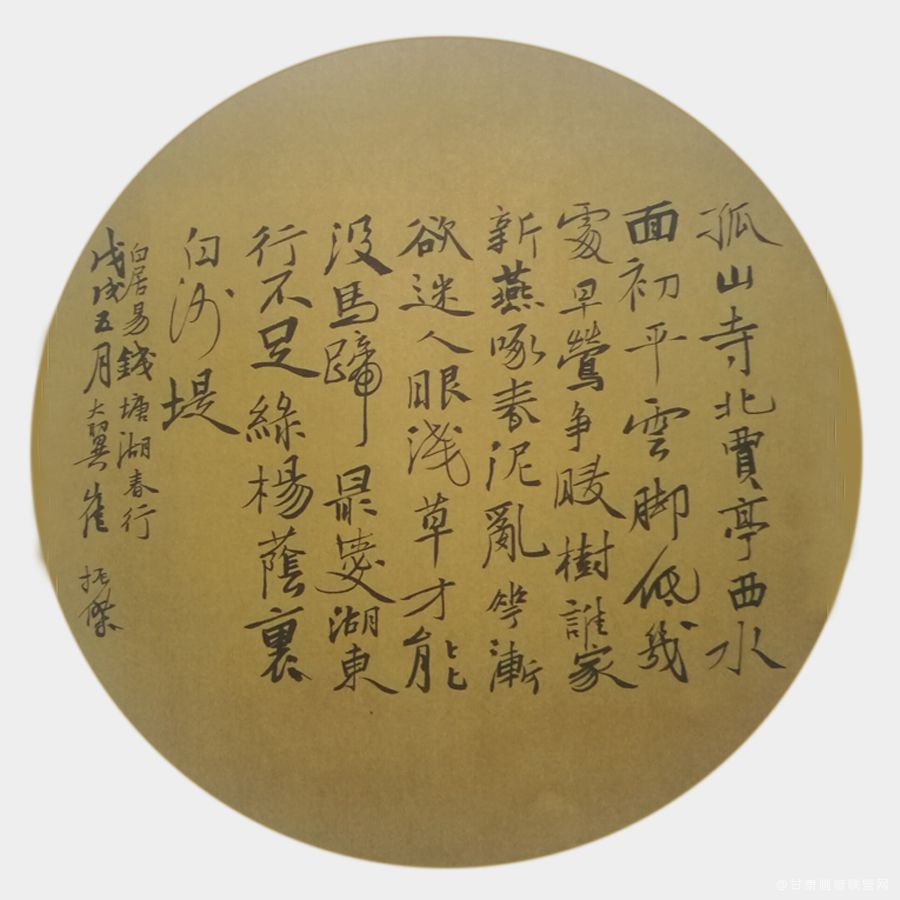 孤山寺北賈亭西水
面初平雲脚低幾
處早鶯争暖樹誰家
新燕啄春泥亂花漸
欲迷人眼淺草才能
没馬蹄最愛湖東
行不足綠楊蔭裏
白沙堤
白居易錢塘湖春行
戊戌五月大翼崔振榮